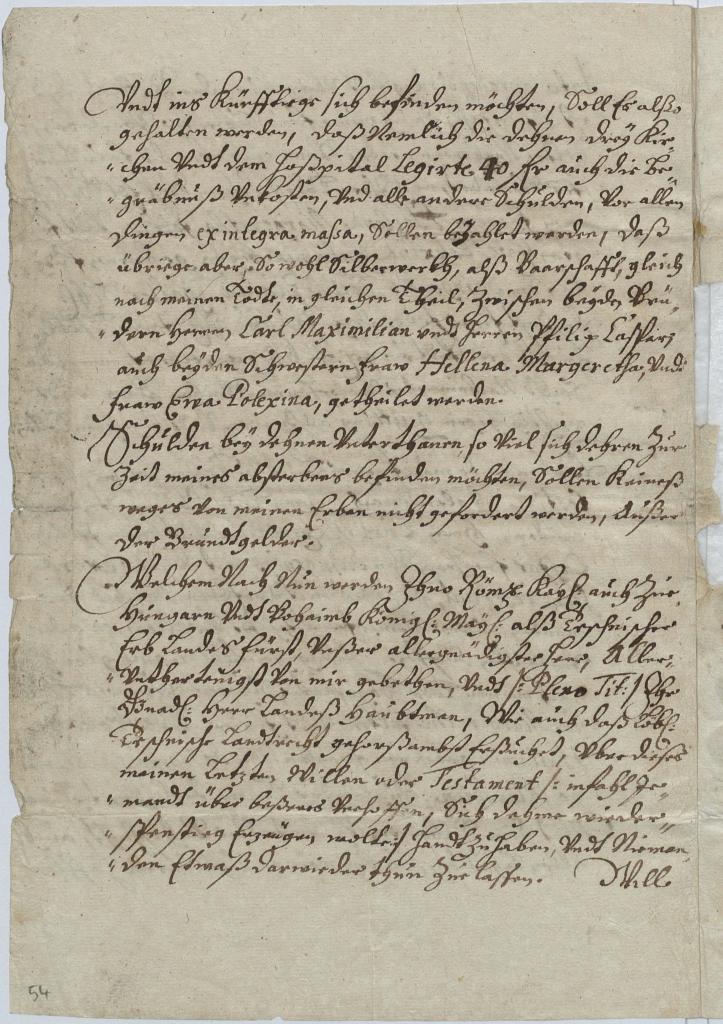 Undt ins Künfftiege sich befinden möchten, Soll Es alßo
gehalten werden, daß Nemlich die dehnen drey Kir-
chen Undt dem Hoßpital Legirte 40 auch die Be-
gräbnuß Unkosten, Und alle andere Schulden, Vor allen
Dingen ex integra massa, Sollen bezahlet werden, daß
übriege aber, So wohl Silberwerkh, alß Baarschafft, gleich
nach meinen Todte, in gleichen Theil, Zwischen beyden Brü-
dern Herren Carl Maximilian undt Herren Philip Casparj
auch beyden Schwestern Fraw Hellena Margeretha, Undt
Fraw Ewa Polexina, getheilet werden.
Schulden bey dehnen Unterthanen so Viel sich dehren Zur
Zeit meines absterbens befinden möchten, Sollen Keineß
weges Von meinen Erben nicht gefordert werden, Außer
der Grundtgelder.
Welchem Nach Nun werden Ihro Röm: Kay: auch Zue
Hungarn Undt Bohaimb König: May: alß Teschnischer
Erb Landes Fürst, Unßer allergnädigster Herr, Aller-
Untertenigst Von mir gebethen, Undt /: Pleno Tit: / Ihr
Gnad: Herr Landeß Haubtman, Wie auch daß Löbl:
Teschnische Landtrecht gehorßambst Erßuchet, Über dießes
meinen Letzten Willen oder Testament /: imfahl Je-
mandt über beßeres Verhoffen, Sich dehme wieder-
spenstieg Erzeugen wolte :/ Handt zu haben, Undt Nieman-
den Etwaß darwieder thun Zue lassen. Will
54